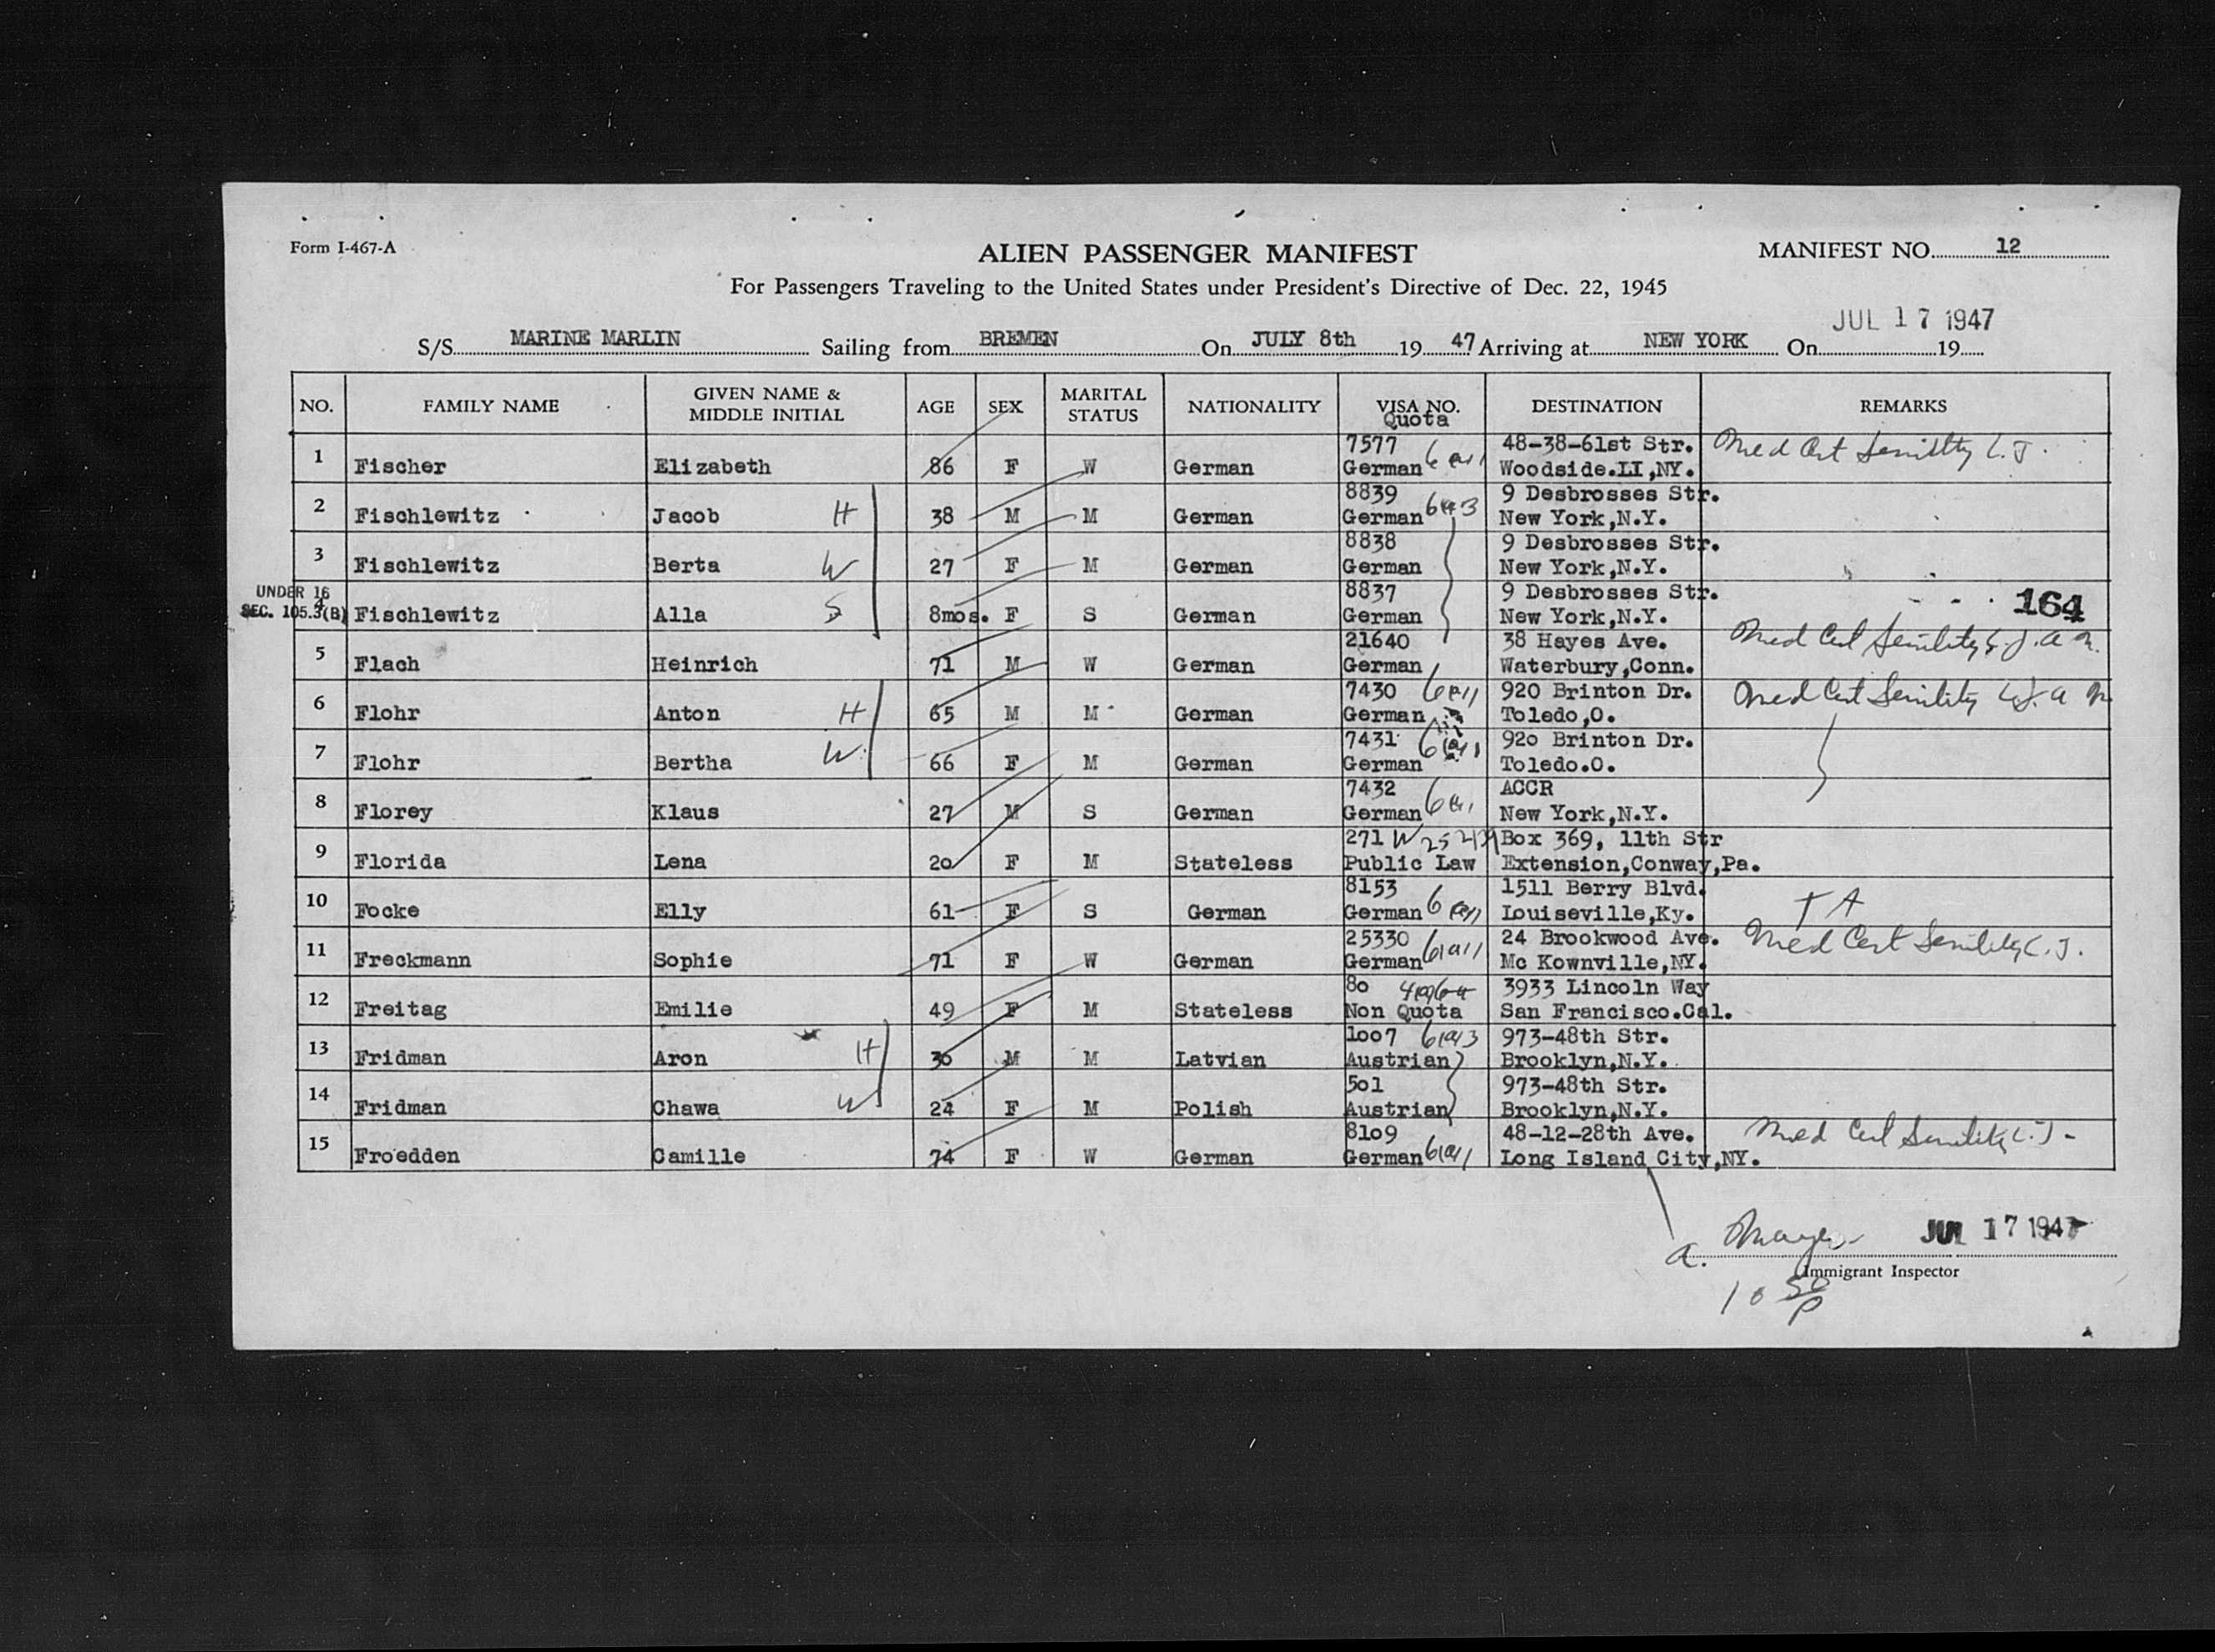 Form I-467-A
ALIEN PASSENGER MANIFEST
MANIFEST NO. 12
For Passengers Traveling to the United States under President's Directive of Dec. 22, 1945
JUL 17 1947
S/S MARINE MARLIN Sailing from BREMEN On JULY 8th 19 47 Arriving at NEW YORK On 19
NO. FAMILY NAME GIVEN NAME & MIDDLE INITIAL AGE SEX MARITAL STATUS NATIONALITY VISA NO. Quota DESTINATION REMARKS
7577 48-38-61st Str. Med Cert Senility L.J.
1 Fischer Elizabeth 86 F W German German Woodside.LI,NY.
8839 9 Desbrosses Str.
2 Fischlewitz Jacob H 38 M M German German New York,N.Y.
8838 9 Desbrosses Str.
3 Fischlewitz Berta W 27 F M German German New York,N.Y.
UNDER 16 8837 9 Desbrosses Str. 164
SEC. 105.3(B) 4 Fischlewitz Alla S 8mos. F S German German New York,N.Y.
21640 38 Hayes Ave. Med Cert Senility
5 Flach Heinrich 71 M W German German Waterbury,Conn.
7430 920 Brinton Dr. Med Cert Senility
6 Flohr Anton H 65 M M German German Toledo,O.
7431 920 Brinton Dr.
7 Flohr Bertha W 66 F M German German Toledo.O.
7432 ACCR
8 Florey Klaus 27 M S German German New York,N.Y.
271 Box 369, 11th Str
9 Florida Lena 20 F M Stateless Public Law Extension,Conway,Pa.
8153 1511 Berry Blvd. TA
10 Focke Elly 61 F S German German Louiseville,Ky.
25330 24 Brookwood Ave. Med Cert Senility L.J.
11 Freckmann Sophie 71 F W German German Mc Kownville,NY.
80 3933 Lincoln Way
12 Freitag Emilie 49 F M Stateless Non Quota San Francisco.Cal.
1007 973-48th Str.
13 Fridman Aron H 30 M M Latvian Austrian Brooklyn,N.Y.
501 973-48th Str.
14 Fridman Chawa W 24 F M Polish Austrian Brooklyn,N.Y.
8109 48-12-28th Ave. Med Cert Senility L.J.
15 Froedden Camille 74 F W German German Long Island City,NY.
JUL 17 1947
Immigrant Inspector